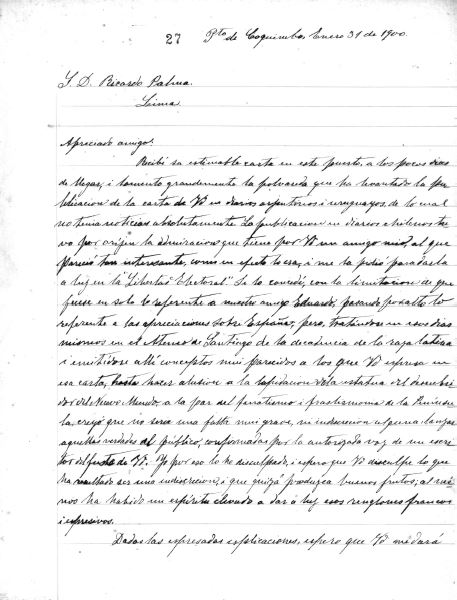 27 Pto de Coquimbo, Enero 31 de 1900.
S. D. Ricardo Palma.
Lima.
Apreciado amigo:
Recibí su estimable carta en este puerto, a los pocos dias
de llegar, i lamento grandemente la polvareda que ha levantado la pu-
blicacion de la carta de V. en diarios arjentinos i uruguayos, de lo cual
no tenia noticias absolutamente. La publicacion en diarios chilenos tu-
vo por oríjen la admiracion que tiene por V. un amigo mio, al que
pareció tan interesante, como en efecto lo era, i me la pidió para darla
a luz en la "Libertad Electoral". Se la concedí, con la limitacion de que
fuese en solo lo referente a nuestro amigo Eduardo, pasando por alto lo
referente a las apreciaciones sobre España; pero, tratándose en esos dias
mismos en el Ateneo de Santiago de la decadencia de la raza latina
i emitídose allí conceptos mui parecidos a los que V. espresa en
esa carta, hasta hacer alusion a la lapidacion de la estatua del descubri-
dor del Nuevo Mundo, a la par del fanatismo i
creyó que no seria una falta mui grave, ni indiscrecion alguna lanzar
aquellas verdades al público, confirmadas por la autorizada voz de un escri-
tor del fuste de V. Yo por eso lo he disculpado, i espero que V. disculpe lo que
ha resultado ser una indiscrecion, i que quizá produzca buenos frutos; al mé-
nos ha habido un espíritu elevado a dar a luz esos renglones francos
i espresivos.
Dadas las espresadas esplicaciones, espero que V. me dará